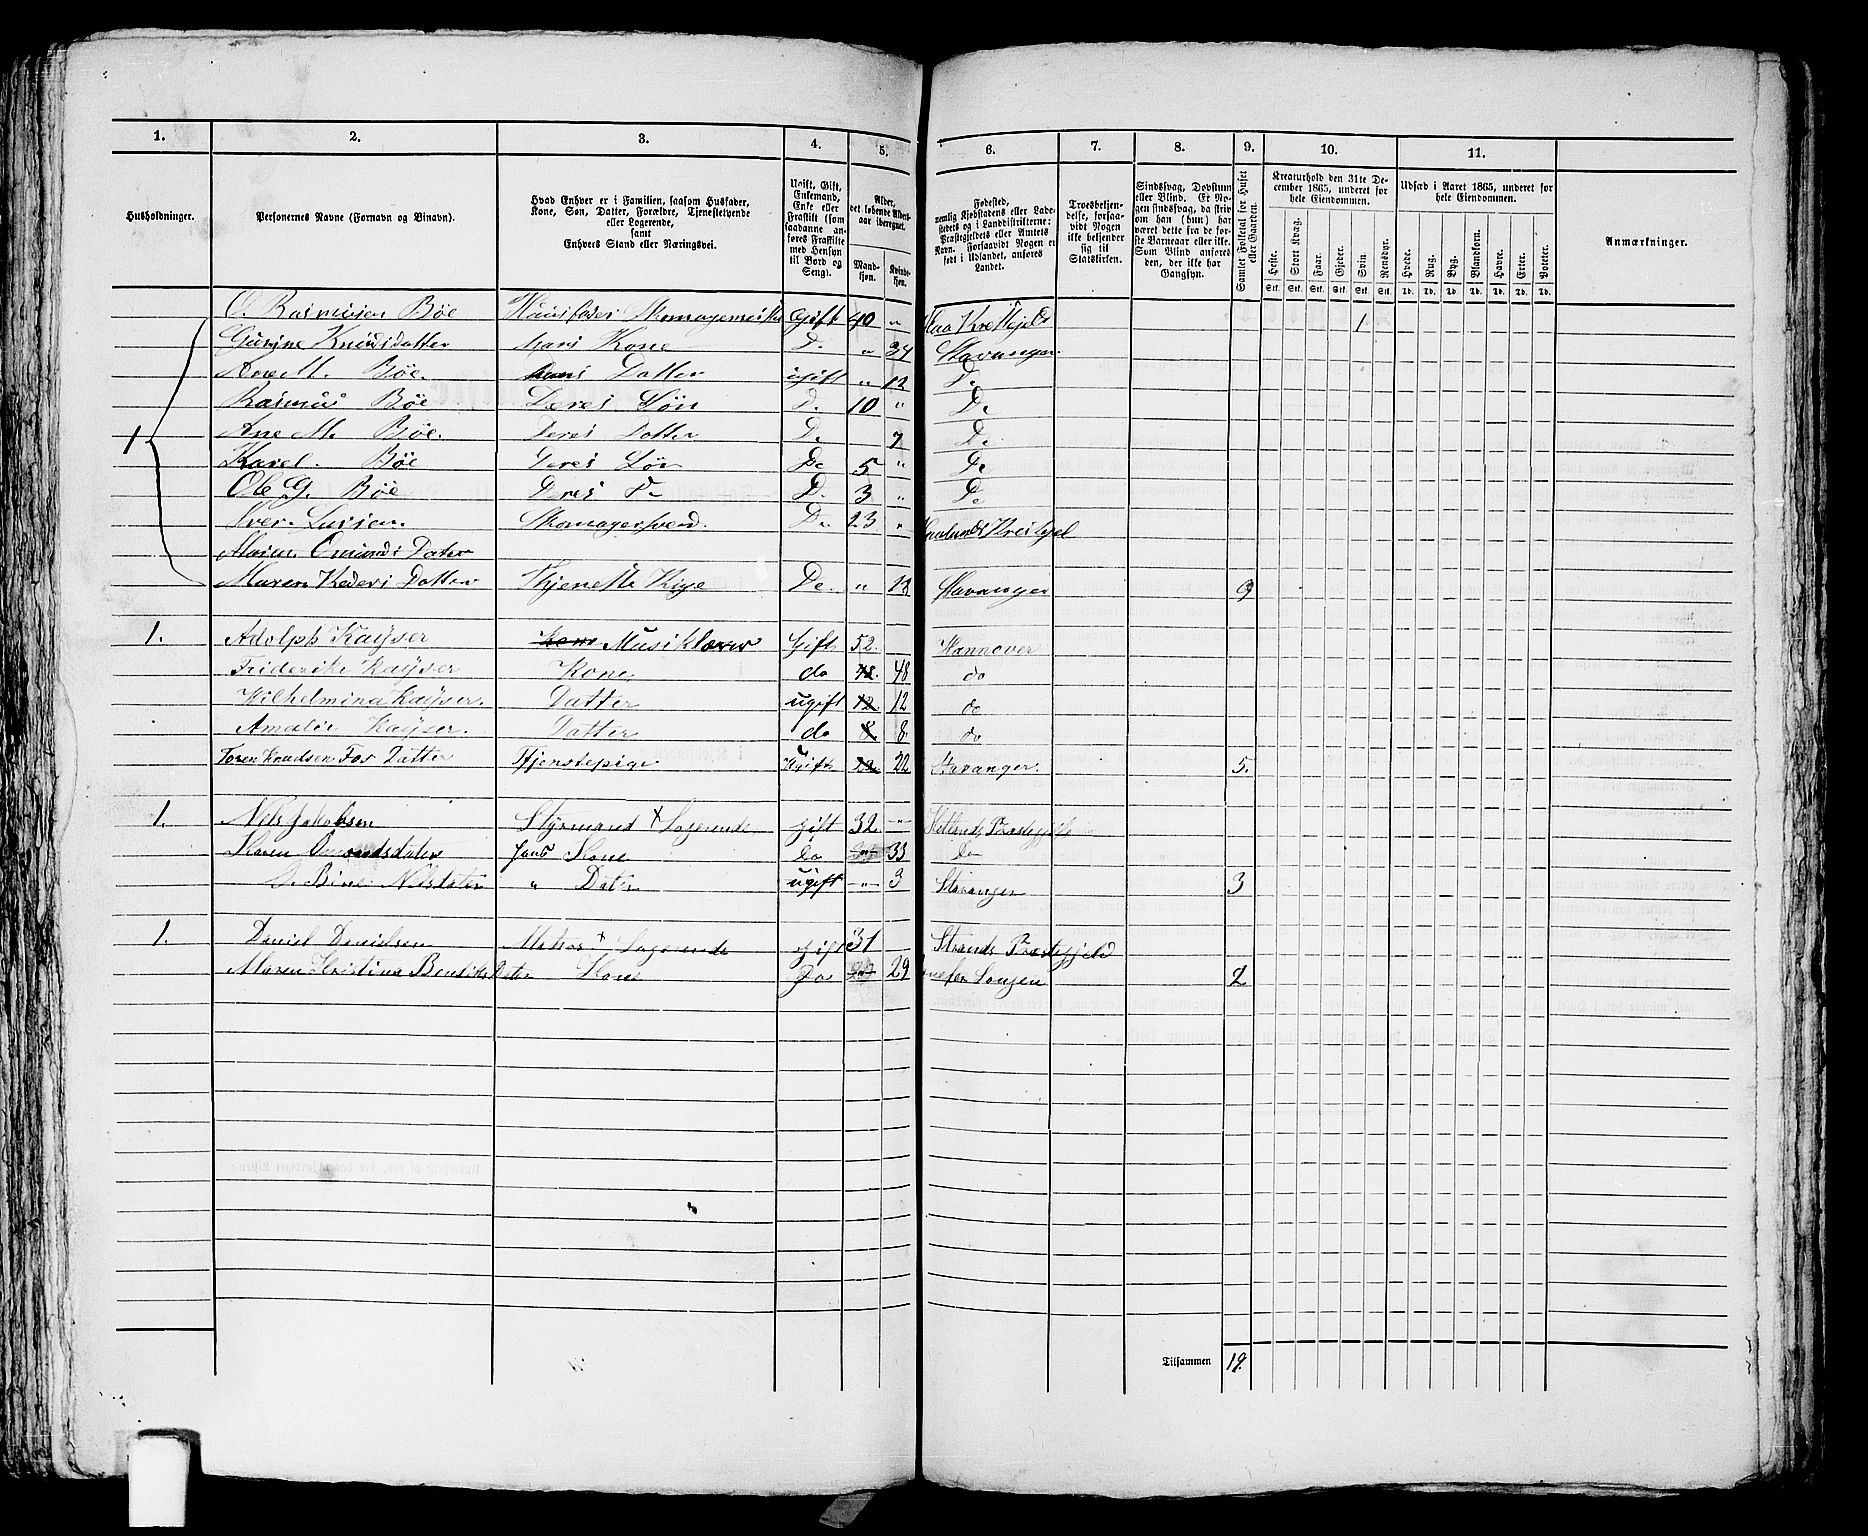 1. 2. 3. 4. 5. 6. 7. 8. 9. 10. 11.
Husholdninger.
Personernes Navne (Fornavn og Binavn).
Hvad Enhver er i Familien, saasom Husfader,
Kone, Søn, Datter, Forældre, Tjenestetyende
eller Logerende,
samt
Enhvers Stand eller Næringsvei.
Ugift, Gift,
Enkemand,
Enke eller
Fraskilt (som
saadanne an-
føres Fraskilte
med Hensyn
til Bord og
Seng).
Alder,
det løbende Alders-
aar iberegnet.
Mand-
kjøn.
Kvinde-
kjøn.
Fødested,
nemlig Kjøbstadens eller Lade-
stedets og i Landdistrikterne:
Præstegjeldets eller Amtets
Navn. Forsaavidt Nogen er
født i Udlandet, anføres
Landet.
Troesbekjen-
delse, forsaa-
vidt Nogen
ikke bekjender
sig til
Statskirken.
Sindssvag, Døvstum
eller Blind. Er No-
gen sindssvag, da skriv
om han (hun) har
været dette fra de før-
ste Barneaar eller ikke.
Som Blind anføres
den, der ikke har
Gangsyn.
Samlet Folketal for Huset
eller Gaarden.
Kreaturhold den 31te De-
cember 1865, underet for
hele Eiendommen.
Heste. Stort Kvæg. Faar. Gjeder. Svin. Rensdyr.
Stk. Stk. Stk. Stk. Stk. Stk.
Udsæd i Aaret 1865, underet for
hele Eiendommen.
Hvede. Rug. Byg. Blandkorn. Havre. Erter. Poteter.
Td. Td. Td. Td. Td. Td. Td.
Anmærkninger.
O. Rasmusen Bøe Huusfader Skomagermester Gift 40 " 1
Gurine Knudsdatter hans Kone D. " 34 Stavanger
Ane M. Bøe. Datter ugift " 12 Do
Rasmus Bøe Deres Søn D. 10 " Do
1 Ane M. Bøe. Deres Datter Do 7 Do
Karel. Bøe Deres Søn Do 5 " Do
Ole G. Bøe Deres Do D. 3 " Do
Iver Larsen. Skomagersvend. Do 23 "
Maren Omunds Datter
Maren Datter Tjeneste Pige Do. " 18 Stavanger 9
1. Adolph Kayser Musiklærer Gift 52. Hannover
Friderike Kayser Kone do 48 do
Wilhelmina Kayser. Datter ugift 12 do
Amalie Kayser. Datter do 8 do
Knudsen Datter Tjenstepige Ugift 22 Stavanger. 5.
1. Nels Jakobsen Styrmand Logerende gift 32. " Hetlands Præstegjeld
Karen Omundsdater hans Kone do 33 Do
Bine Nelsdater " Dater ugift " 3 Stavanger 3
1. Daniel Danielsen Logerende gift 31 Strands Præstegjeld
Maren Kristina Bendiks Dater Kone Do 29 2
Tilsammen 19.